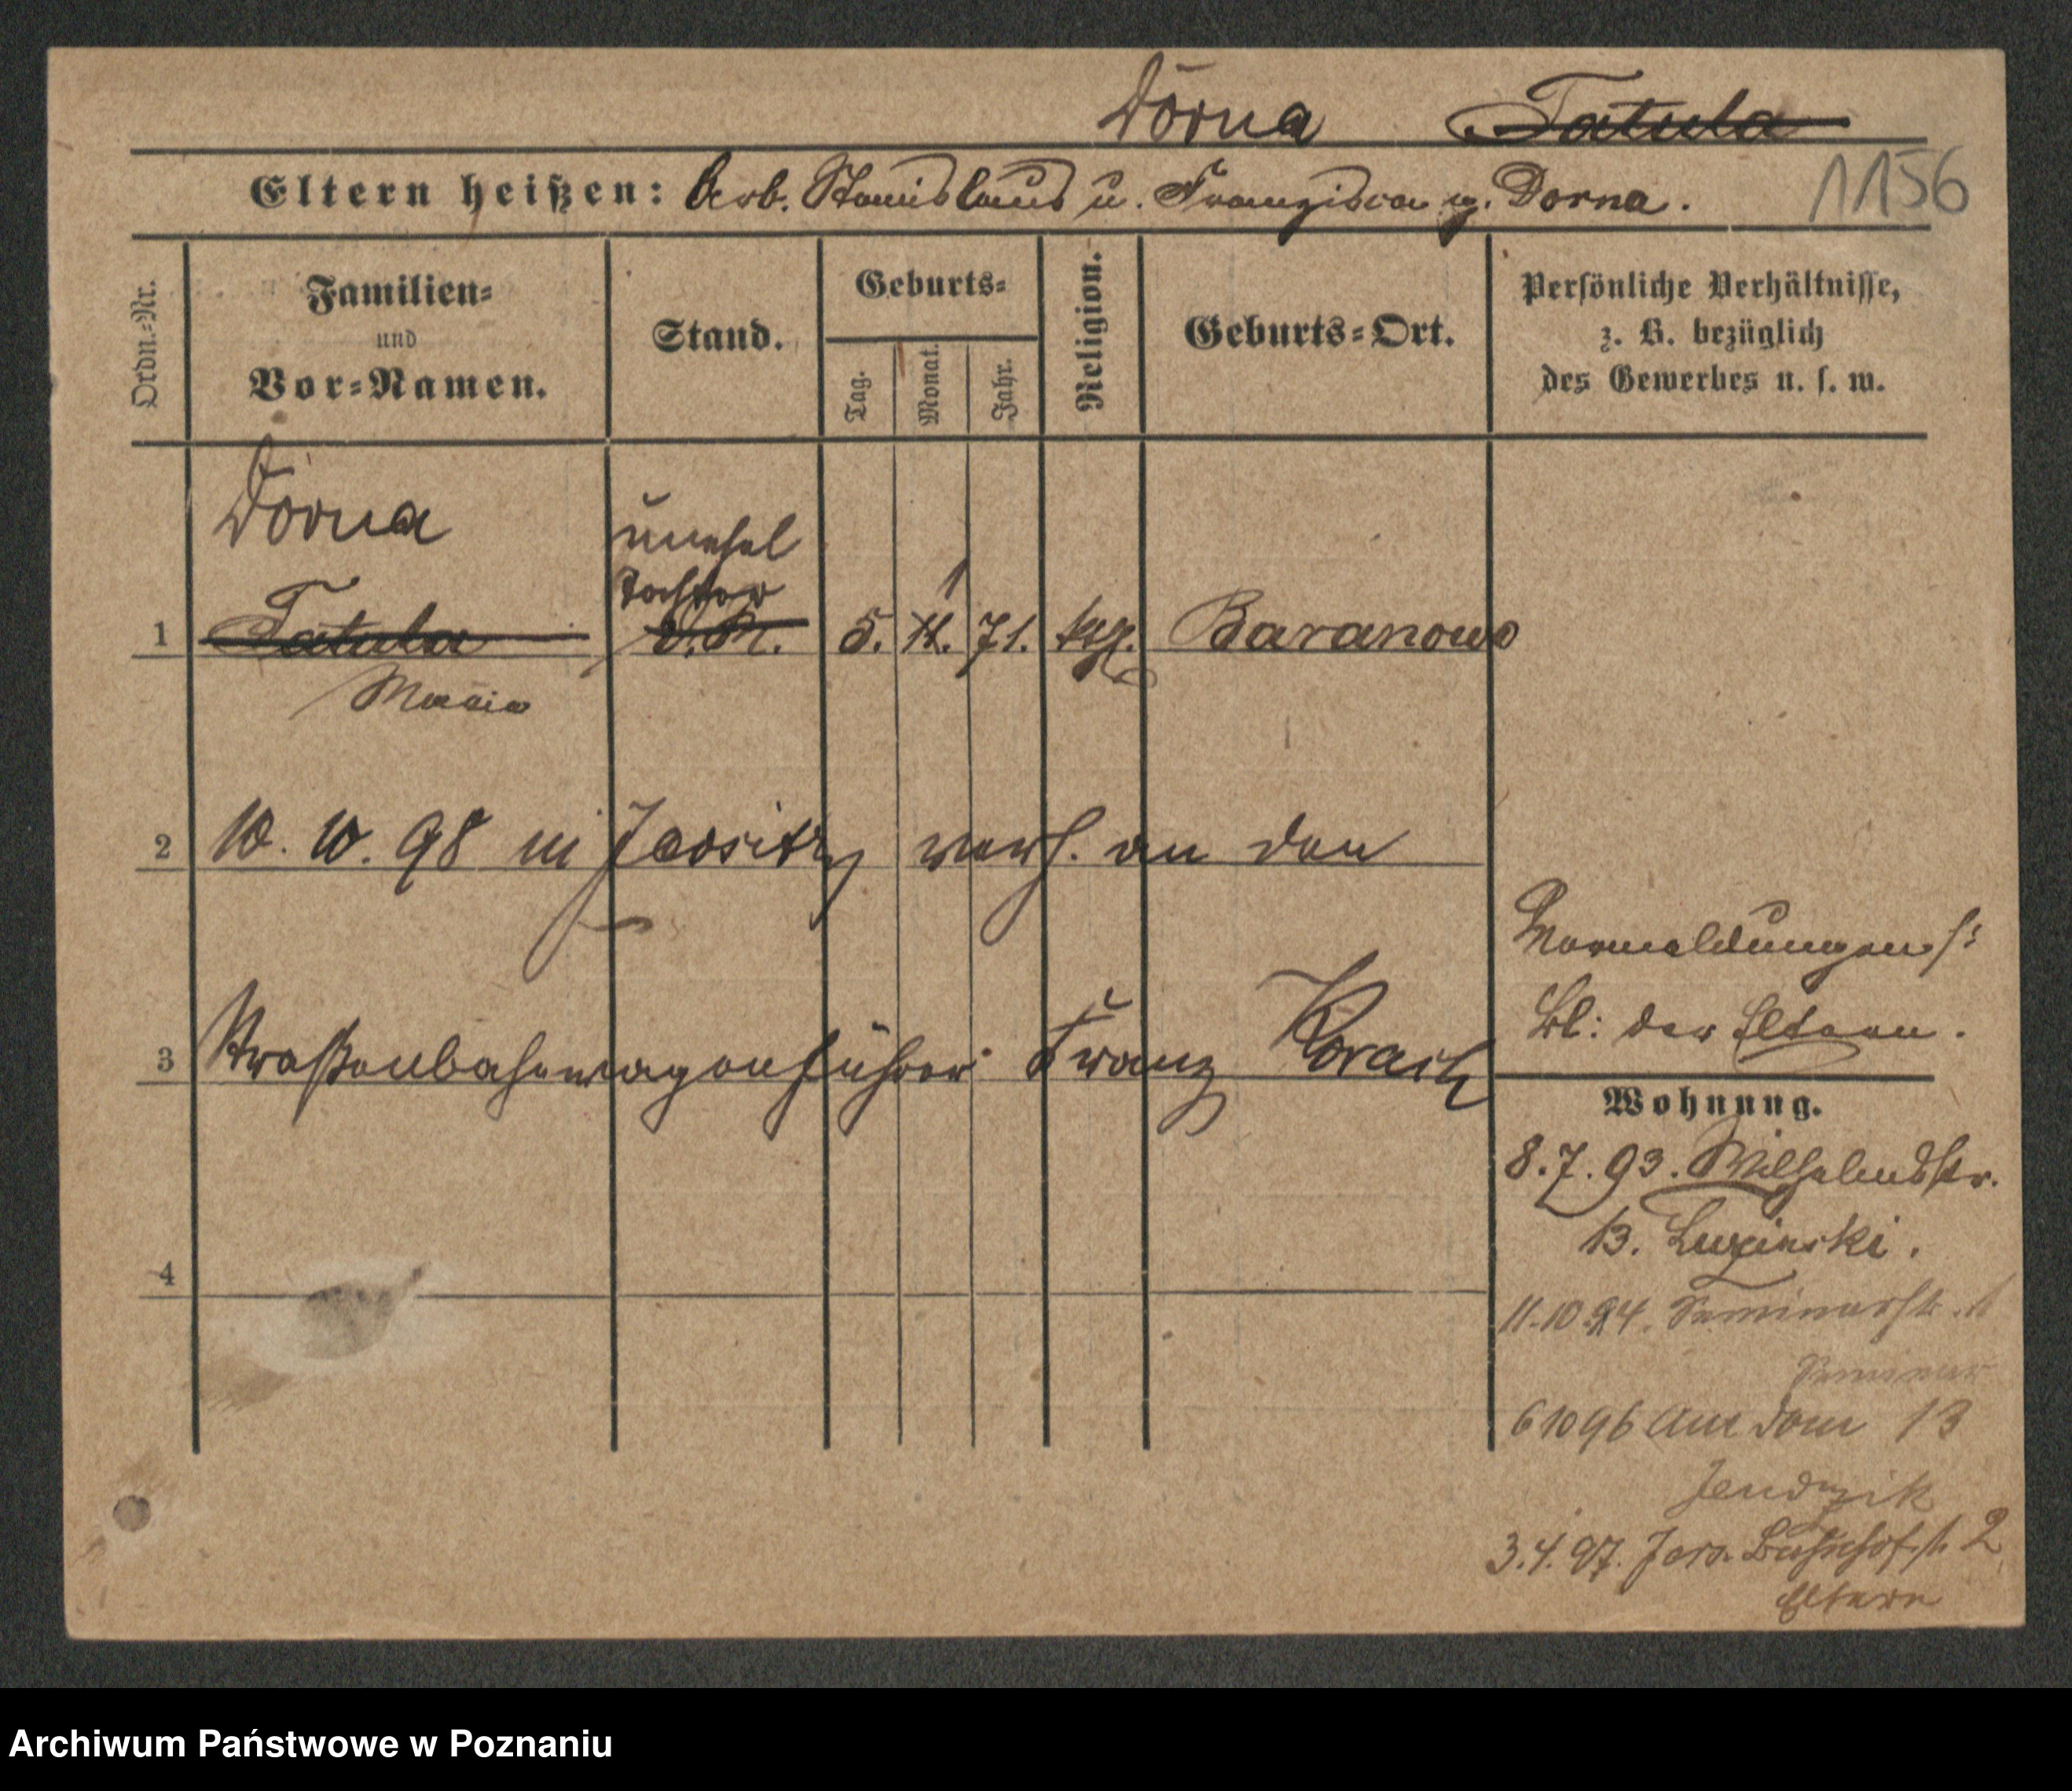 Dorna Tatula
1156
Eltern heißen: Arb. Stanislaus u. Franziska g. Dorna.
Ordn.-Nr.
Familien-
und
Vor-Namen.
Stand.
Geburts-
Tag.
Monat.
Jahr.
Religion.
Geburts-Ort.
Persönliche Verhältnisse,
z. B. bezüglich
des Gewerbes u. s. w.
Dorna
unehel
Tochter
1 Tatula D.M. 5. 11. 1 71. kgl. Baranowo
Maria
2 10. 10. 98 in Jersitz verh. an den
3 Straßenbahnwagenführer Franz
4
Vormeldungen s:
Bl: der Eltern.
Wohnung.
8.7.93. Wilhelmstr.
13.
11.10.94. Seminarstr. 1
Seminar
6 10 96 Am Dom 13
Jendrzik
3.4.97. Jers. Bahnhofst. 2
Eltern
Archiwum Państwowe w Poznaniu